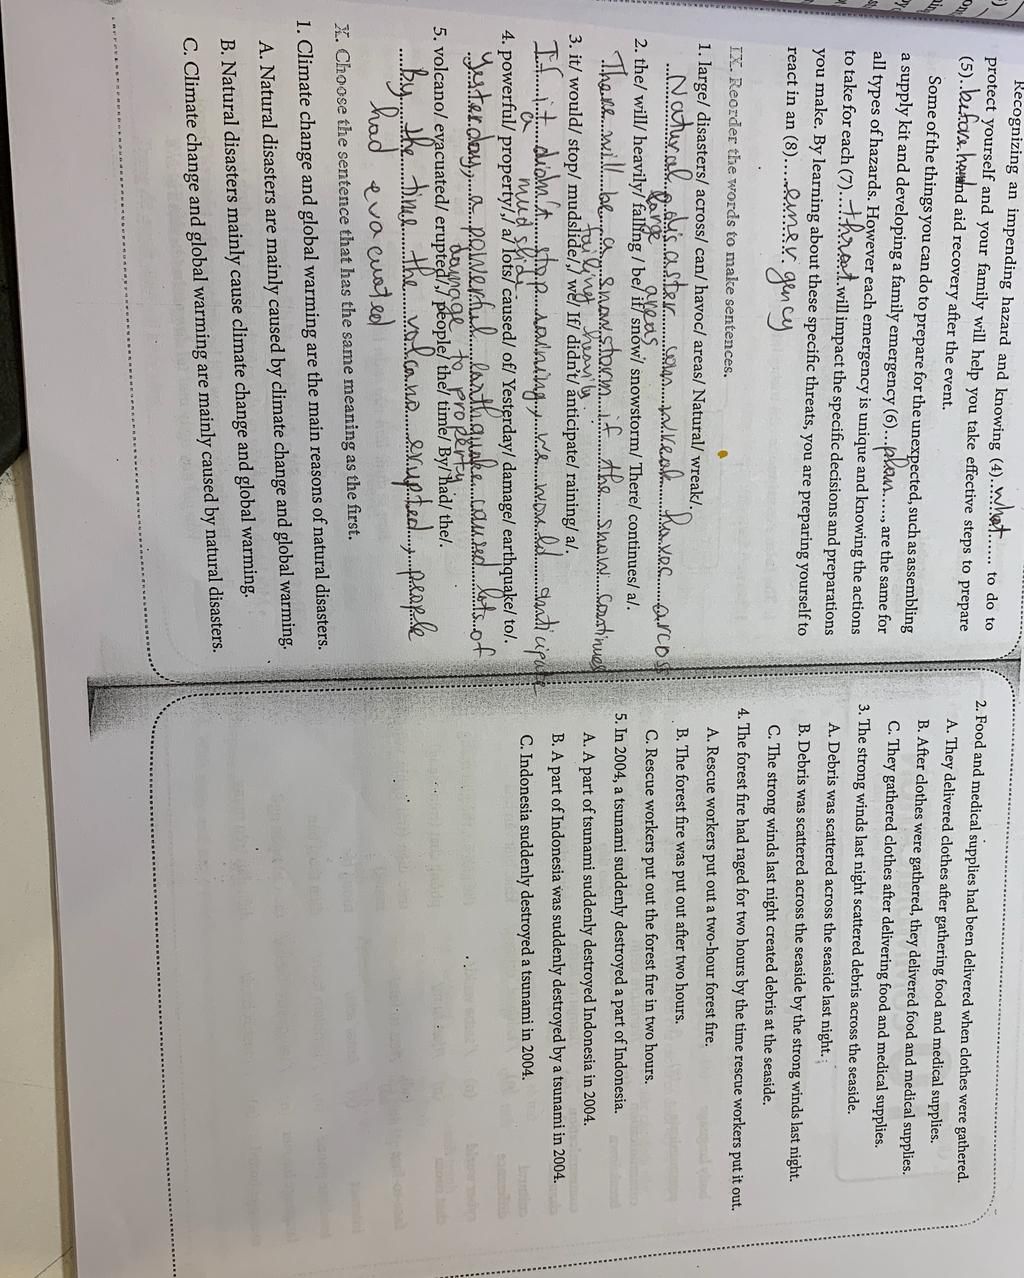 Recognizing an impending hazard and knowing (4)..what...... to do to
protect yourself and your family will help you take effective steps to prepare
(5)..before hand and aid recovery after the event.
Some of the things you can do to prepare for the unexpected, such as assembling
a supply kit and developing a family emergency (6)...plan...., are the same for
all types of hazards. However each emergency is unique and knowing the actions
to take for each (7)...threat..will impact the specific decisions and preparations
you make. By learning about these specific threats, you are preparing yourself to
react in an (8)....emergency
IX. Reorder the words to make sentences.
1. large/ disasters/ across/ can/ havoc/ areas/ Natural/ wreak/.
...Natural..disaster....can..wreak..havoc...arcos
large areas
2. the/ will/ heavily/ falling / be/ if/ snow/ snowstorm/ There/ continues/ a/.
There...will...be..a..snowstorm...if...the...snow...continues
failing heavily.
3. it/ would/ stop/ mudslide/,/ we/ If/ didn't/ anticipate/ raining/ a/.
If....it..didn't...stop...raining.,..we...would....anticipate
a mudslid
4. powerful/ property/,/ a/ lots/ caused/ of/ Yesterday/ damage/ earthquake/ to/.
.Yesterday,..a..powerful...earthquake..caused..lots..of
damage to property.
5. volcano/ evacuated/ erupted/,/ people/ the/ time/ By/ had/ the/.
...by..the...time...the...volcano...erupted..,..people
had evacuated
X. Choose the sentence that has the same meaning as the first.
1. Climate change and global warming are the main reasons of natural disasters.
A. Natural disasters are mainly caused by climate change and global warming.
B. Natural disasters mainly cause climate change and global warming.
C. Climate change and global warming are mainly caused by natural disasters.
2. Food and medical supplies had been delivered when clothes were gathered.
A. They delivered clothes after gathering food and medical supplies.
B. After clothes were gathered, they delivered food and medical supplies.
C. They gathered clothes after delivering food and medical supplies.
3. The strong winds last night scattered debris across the seaside.
A. Debris was scattered across the seaside last night.
B. Debris was scattered across the seaside by the strong winds last night.
C. The strong winds last night created debris at the seaside.
4. The forest fire had raged for two hours by the time rescue workers put it out.
A. Rescue workers put out a two-hour forest fire.
B. The forest fire was put out after two hours.
C. Rescue workers put out the forest fire in two hours.
5. In 2004, a tsunami suddenly destroyed a part of Indonesia.
A. A part of tsunami suddenly destroyed Indonesia in 2004.
B. A part of Indonesia was suddenly destroyed by a tsunami in 2004.
C. Indonesia suddenly destroyed a tsunami in 2004.